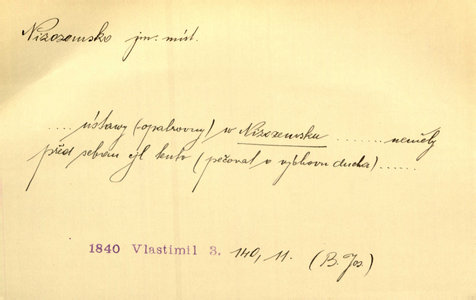 Nizozemsko jm. míst.
..... ústavy (opatrovny) v Nizozemsku ........ neměly
před sebou cýl tento (pečovat o výchovu ducha) ......
1840 Vlastimil 3. 140, 11. (B. Jos.)